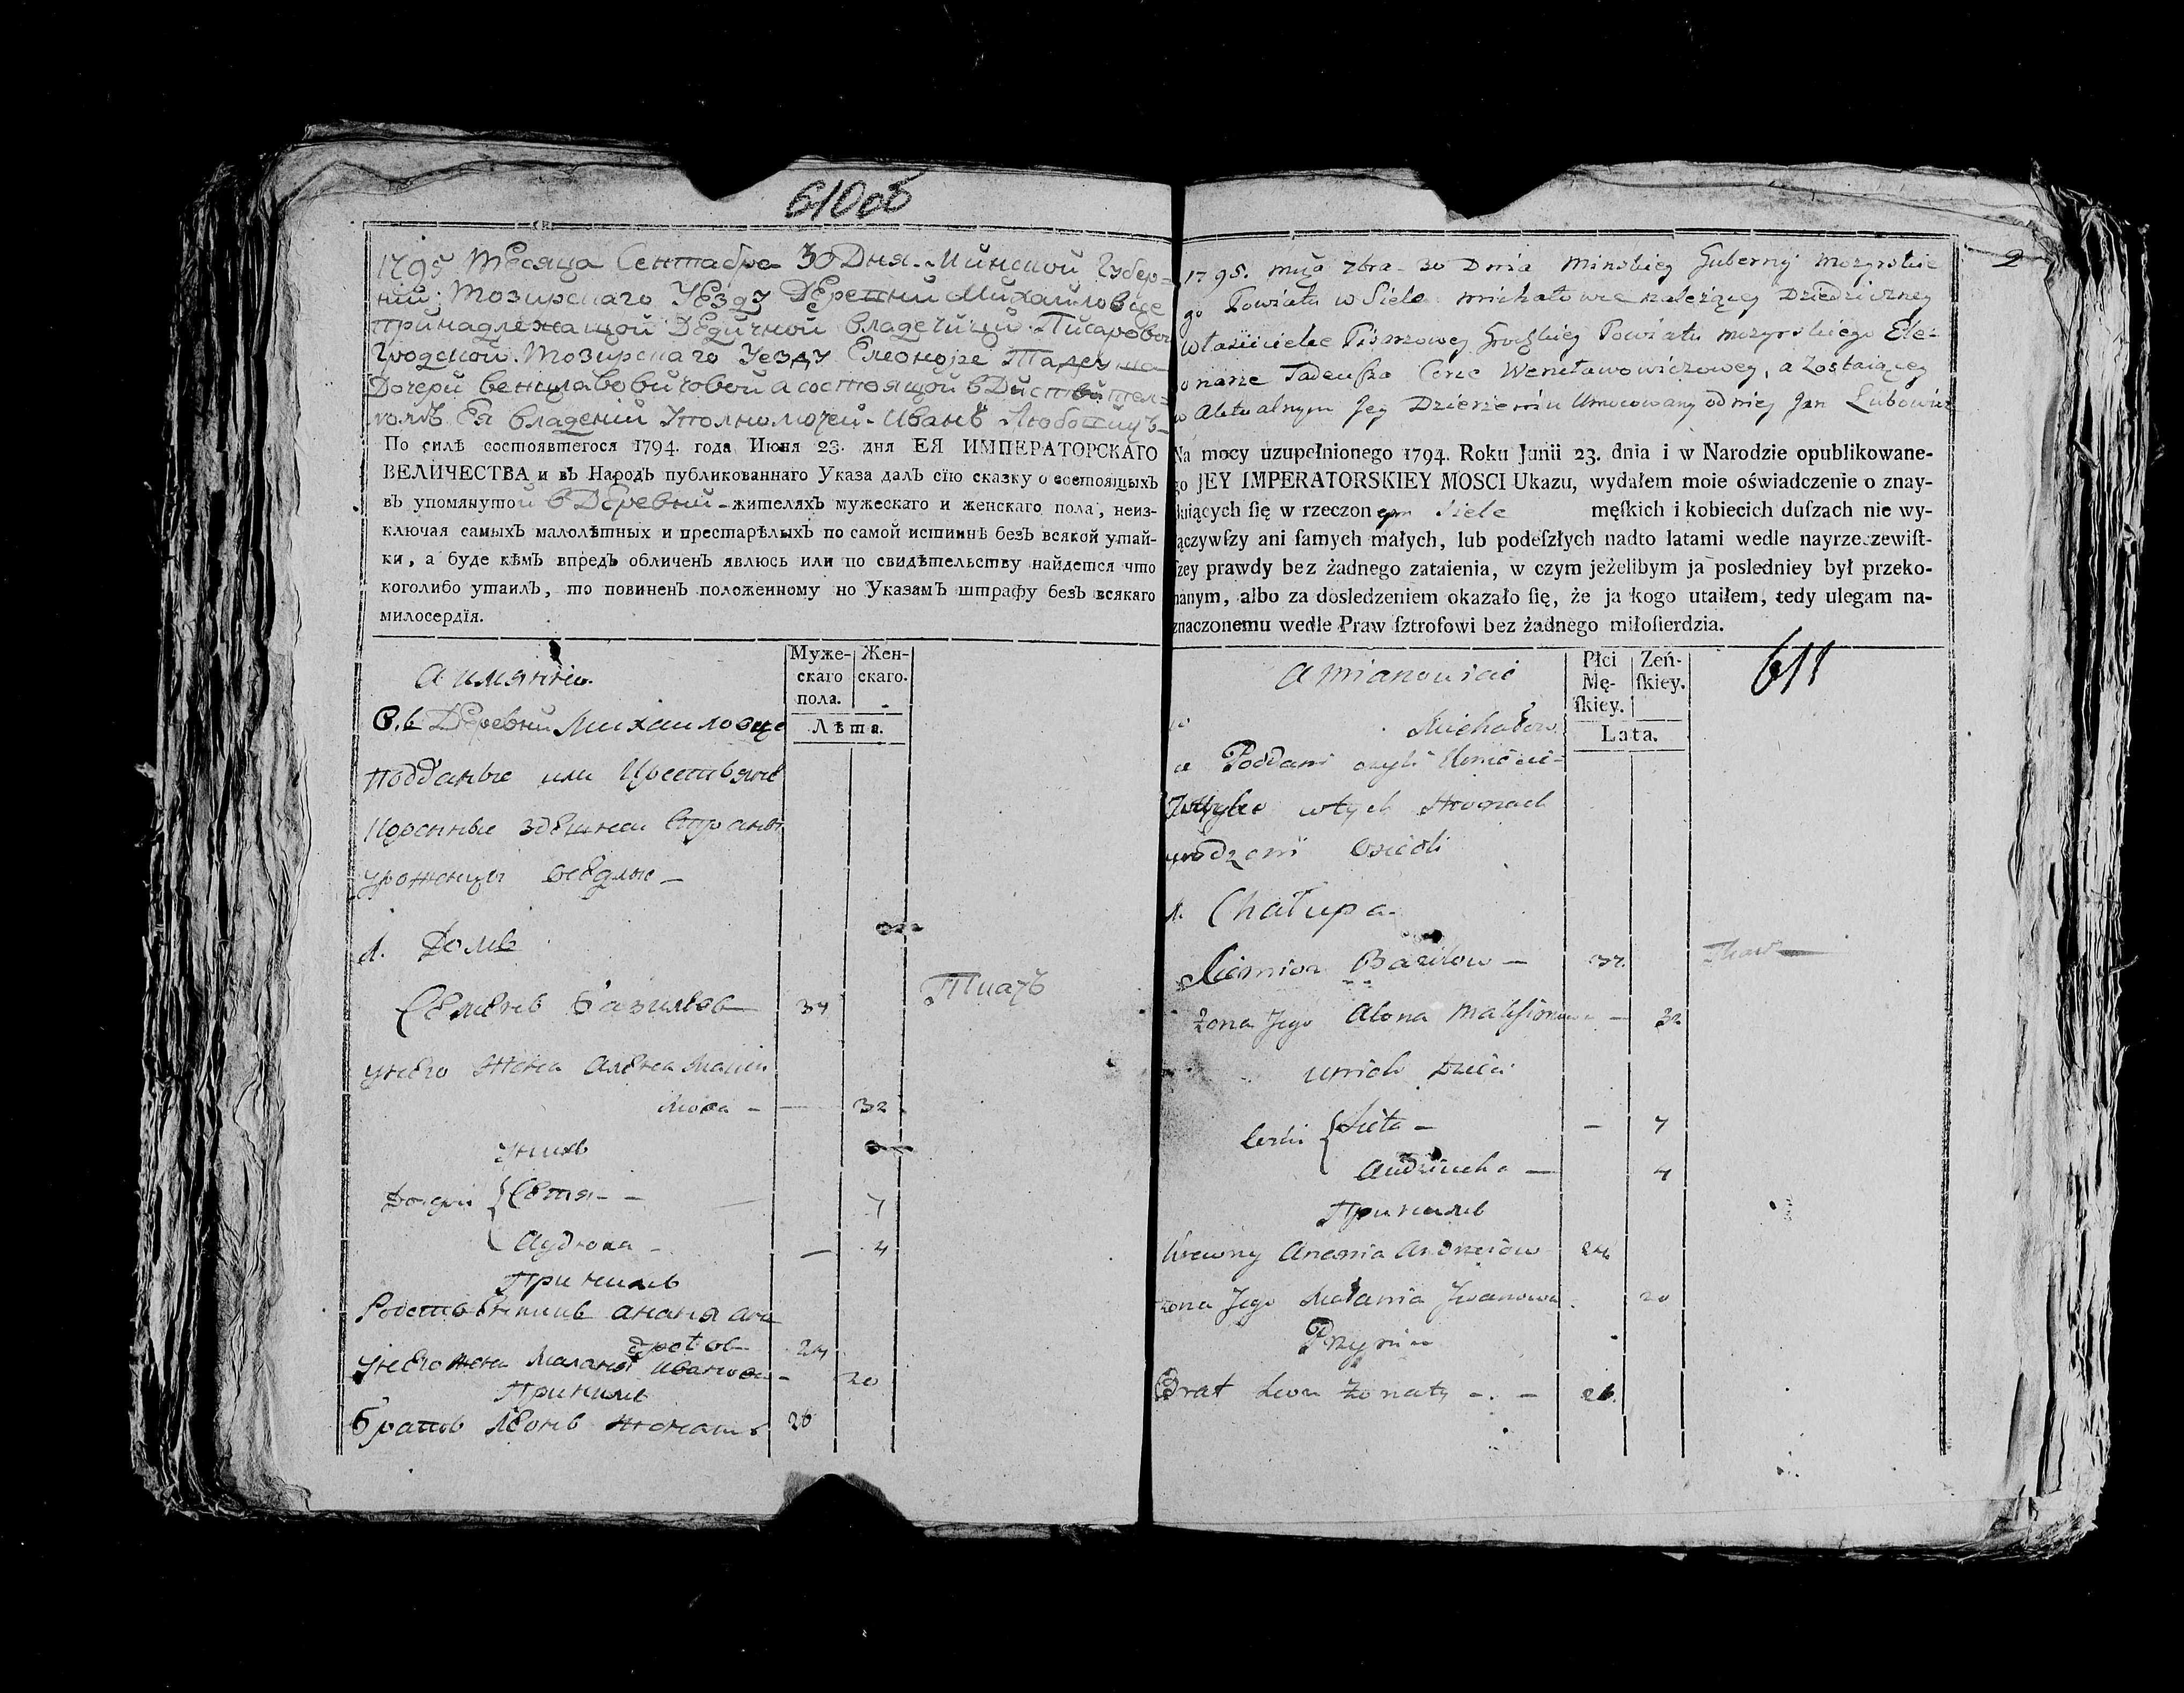 610об
1795 Месяца Сентабра 30 Дня Минской Губер-
ній Мозирскаго Уезду Деревни Михаиловце
принадлежащой Дедичной владечицы Писаровой
Гродской Мозирскаго Уезду Елеоноре Тадеуша
Дочери Венцлавовичовой а состоящой в Дистви тел-
номъ Ея владений Уполномочен Иванъ
По силѣ состоявшегося 1794. года Июня 23. дня ЕЯ ИМПЕРАТОРСКАГО
ВЕЛИЧЕСТВА и въ НародЪ публикованнаго Указа далЪ сїю сказку о состоящыхЪ
въ упомянутой в Деревни - жителяхЪ мужескаго и женскаго пола, неиз-
ключая самыхЪ малолѣтныхъ и престарѣлыхЪ по самой истиннѣ безЪ всякой утай-
ки, а буде кѣмЪ впредь обличенЪ явлюсь или по свидѣтельству найдется что
коголибо утаилЪ, то повиненЪ положенному по УказамЪ штрафу безЪ всякаго
милосердїя.
а имянно
Муже-
скаго
пола.
Жен-
скаго.
Лѣта.
В Деревни Михаиловце
подданые или
здешнеи Стране
уроженцы оседлые -
1. Домъ
Семенъ Базилевъ 37
унего жена Алена Макси
мова - 32
унихъ
Дочери { Сетя - - 7
Аудюха - 4
Принихъ
Родственникъ Ананя Ан
дреевъ 24
унего жена Маланя Иванова - 20
Принихъ
братъ Леонъ женатъ 26
2
1795. msca 7bra 30 Dnia Minskiey Guberny Mozyrskie
go Powiatu w Siele Michałowce należącey Dziedziczney
Właścicielce Pisarzowey Grodzkiey Powiatu Mozyrskiego Ele-
onorze Tadeusza Corce Wencławowiczowey, a Zostaiącey
w Aktualnym Jey Dzierżeniu Umocowany od niey Jan
Na mocy uzupełnionego 1794. Roku Junii 23. dnia i w Narodzie opublikowane-
go JEY IMPERATORSKIEY MOSCI Ukazu, wydałem moie oświadczenie o znay-
duiących ſię w rzeczon ym Siele męſkich i kobiecich duſzach nie wy-
łączywſzy ani ſamych małych, lub podeſzłych nadto latami wedle nayrzeczewiſt-
ſzey prawdy bez żadnego zataienia, w czym jeżelibym ja posledniey był przeko-
nanym, albo za dosledzeniem okazało ſię, że ja kogo utaiłem, tedy ulegam na-
znaczonemu wedle Praw ſztrofowi bez żadnego miłoſierdzia.
a mianowicie
Płci
Mę-
ſkiey.
Zeń-
ſkiey.
Lata.
611
Michałow
Poddani czyli
w tych stronach
urodzeni Osiedli
1. Chałupa
Siemion Bazilow - 37
Zona Jego Alona Maksimowa - 32
u nich Dzieci
Corki { Sieta - - 7
Audziucha - 4
Принихъ
Krewny Anania Andrzeiow 24
zona Jego Małania Jwanowa 20
Przy nim
Brat Leon żonaty - - 26